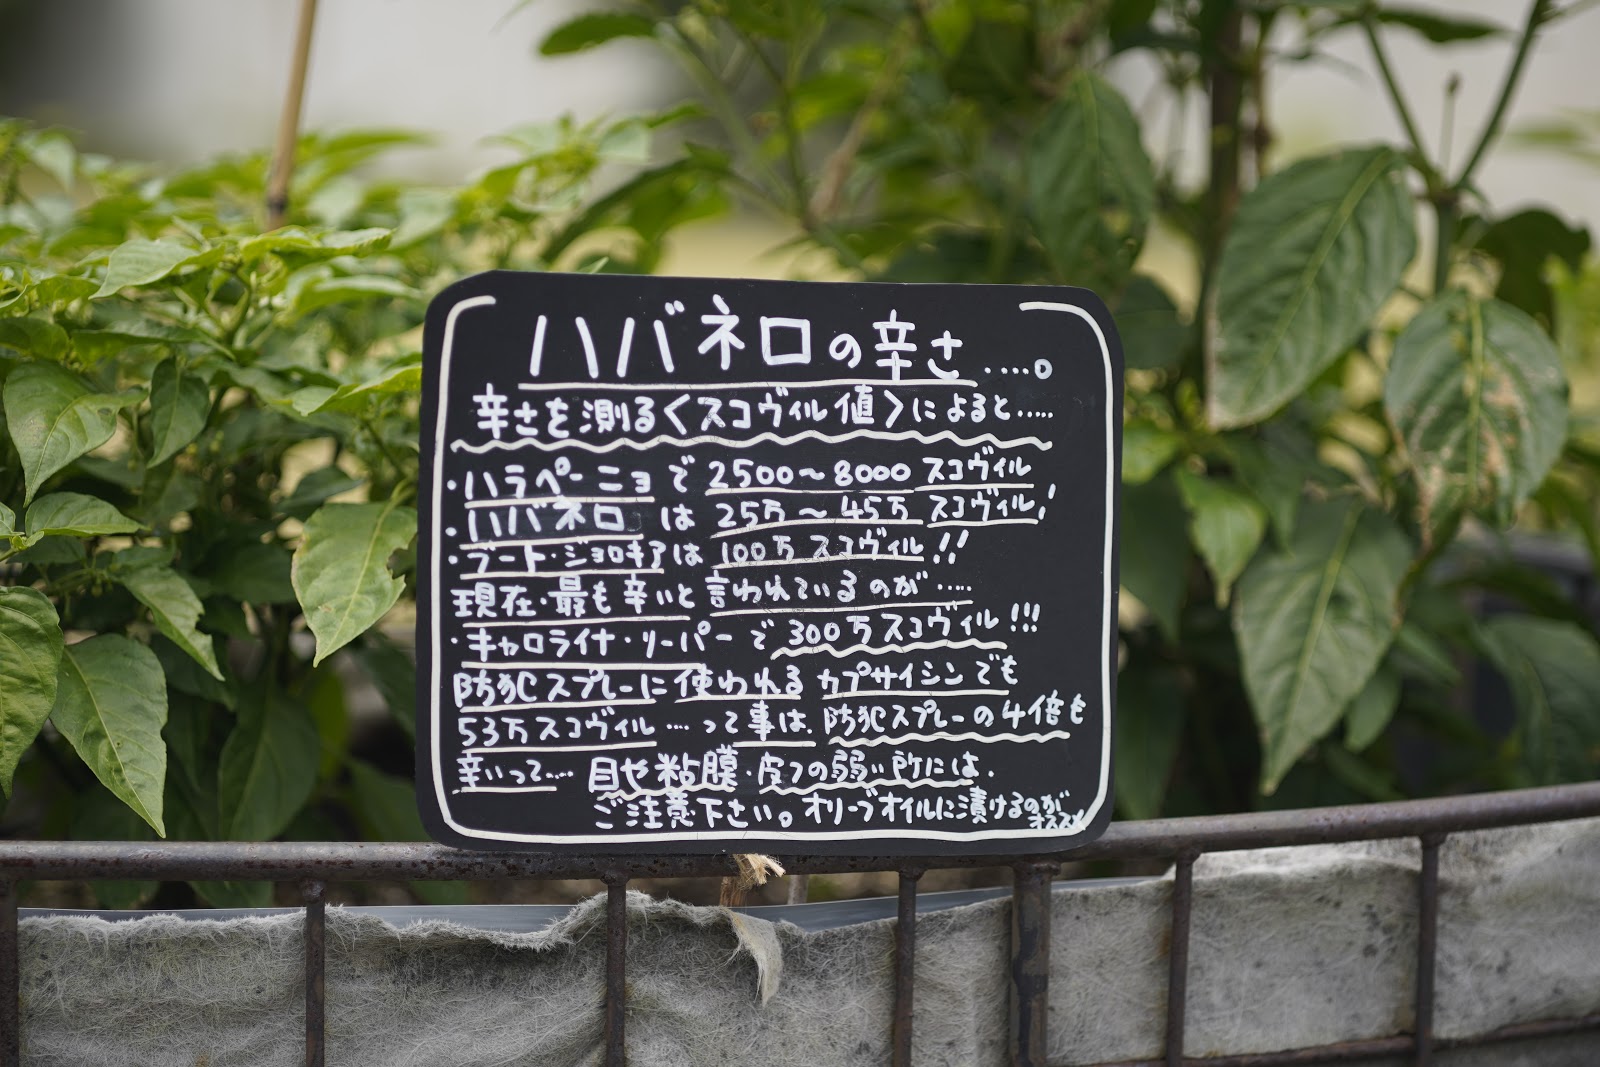 ハバネロの辛さ....。
辛さを測る〈スコヴィル値〉によると.....
・ハラペーニョで 2500～8000 スコヴィル
・ハバネロ は 25万～45万 スコヴィル!
・ブート・ジョロキアは 100万 スコヴィル!!
現在・最も辛いと言われているのが.....
・キャロライナ・リーパーで 300万スコヴィル!!!
防犯スプレーに使われるカプサイシンでも
53万スコヴィル....って事は、防犯スプレーの4倍も
辛いって.... 目や粘膜・皮フの弱い所には、
ご注意下さい。オリーブオイルに漬けるのが
オススメ